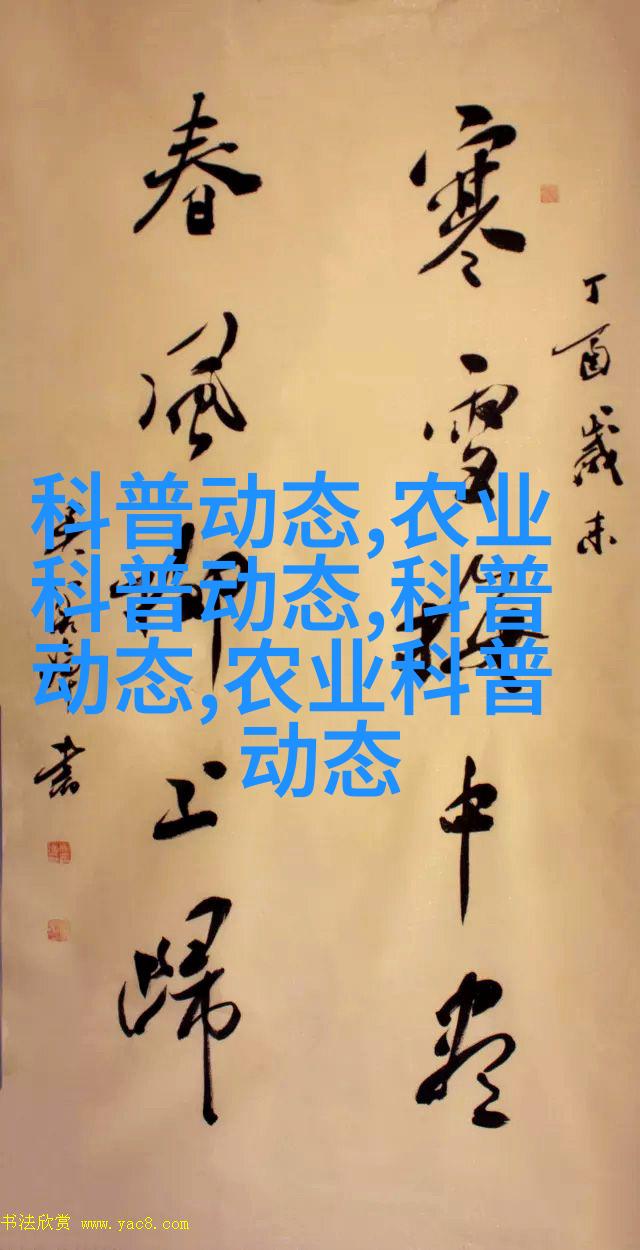 丁酉岁末
寒雪梅中尽
春风柳上归
书
科普动态,农业
科普动态,科普
动态,农业科普
动态
书法欣赏 www.yac8.com